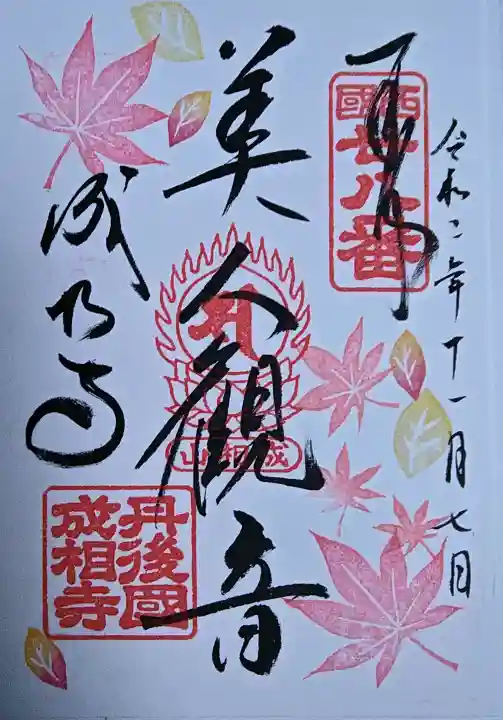 令和二年十一月七日
奉拝
西國廿八番
美人観音
成相山
成相寺
丹後國成相寺